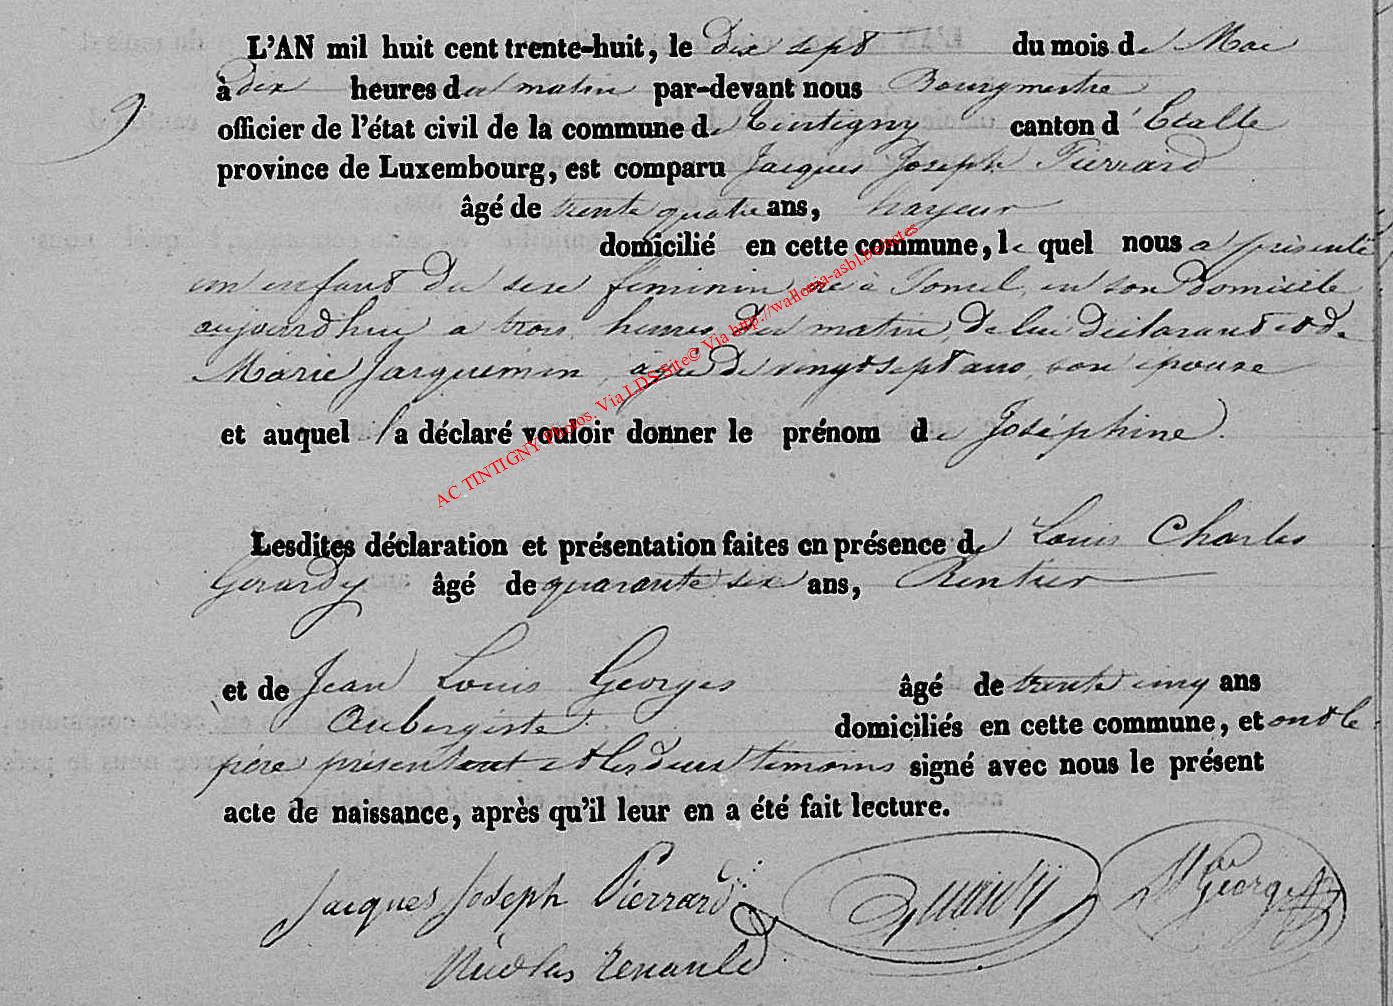 L'AN mil huit cent trente-huit, le dix sept du mois de Mai
à dix heures du matin par-devant nous Bourgmestre
officier de l'état civil de la commune de Tintigny canton d'Etalle
province de Luxembourg, est comparu Jacques Joseph Pierrard
âgé de trente quatre ans,
domicilié en cette commune, le quel nous a présenté
un enfant du sexe féminin né à en son Domicile
aujourd'hui a trois heures du matin, de lui déclarant et de
Marie Jacquemin, agée de vingt sept ans, son épouse
et auquel l a déclaré vouloir donner le prénom de Joséphine
Lesdites déclaration et présentation faites en présence de Louis Charles
Gerardy âgé de quarante six ans, Rentier
et de Jean Louis Georges âgé de trente cinq ans
Aubergiste domiciliés en cette commune, et ont le
père présentant et les deux témoins signé avec nous le présent
acte de naissance, après qu'il leur en a été fait lecture.
Jacques Joseph Pierrard
Georges
Nicolas Renauld
AC TINTIGNY Photos. Via LDS Site© Via http://wallonia-asbl.be/actes